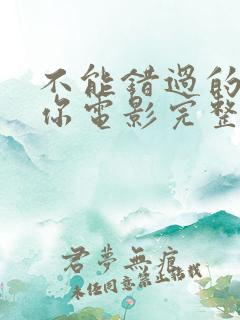 不能错過的
你电影完整
君夢無痕
未经同意禁止转载